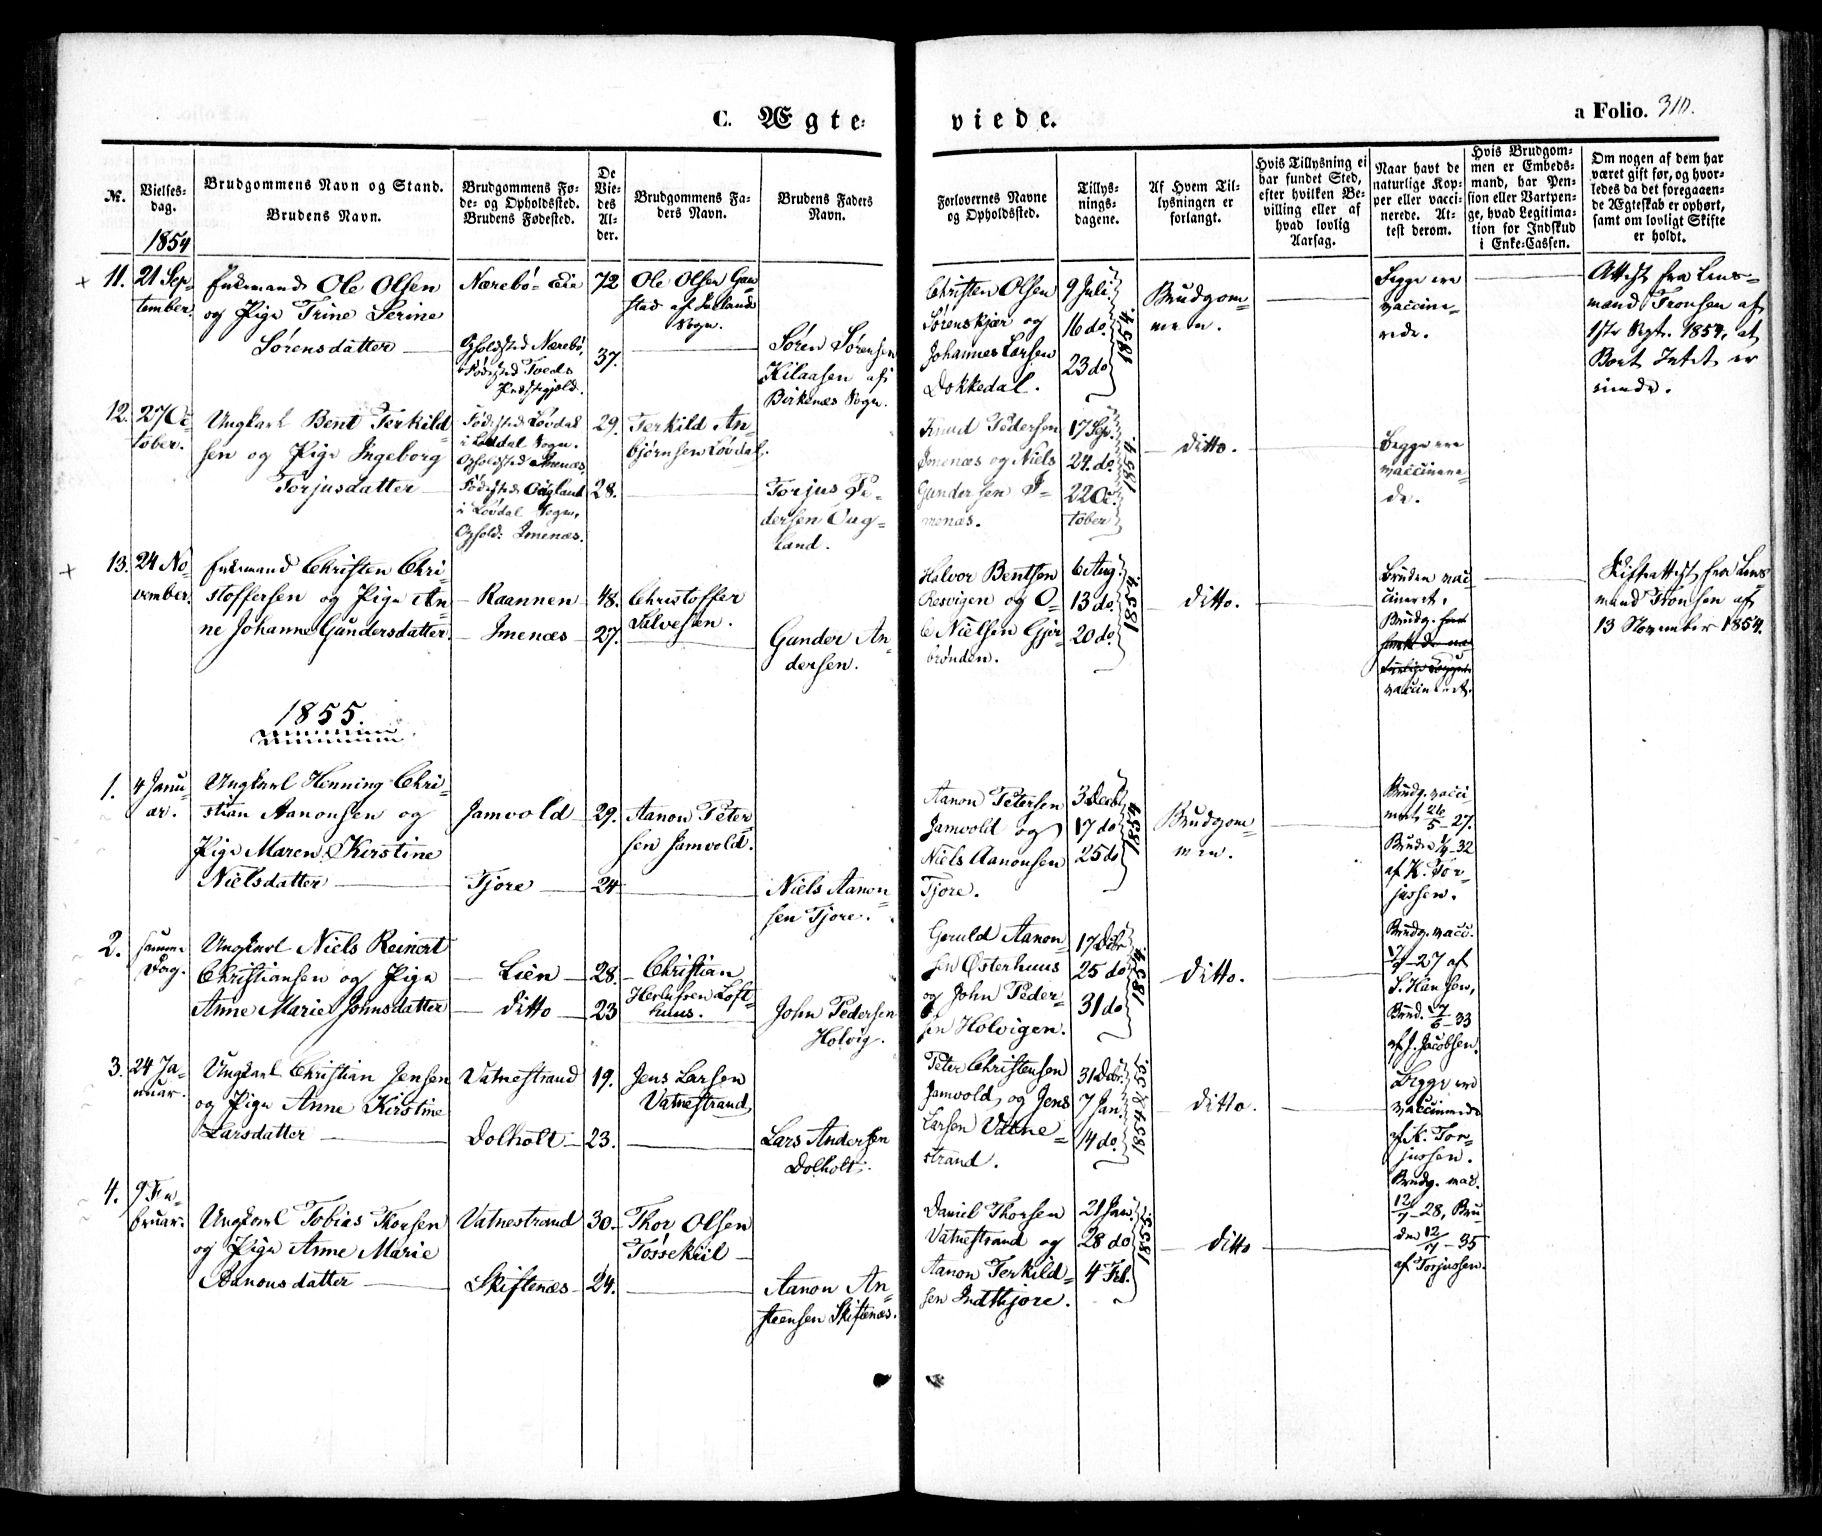 C. Ægte-
viede.
a Folio. 310.
Nr.
Vielses-
dag.
Brudgommens Navn og Stand.
Brudens Navn.
Brudgommens Fø-
de- og Opholdssted.
Brudens Fødested.
De
Vie-
des
Al-
der.
Brudgommens Fa-
ders Navn.
Brudens Faders
Navn.
Forlovernes Navne
og Opholdssted.
Tillys-
nings-
dagene.
Af Hvem Til-
lysningen er
forlangt.
Hvis Tillysning ei
har fundet Sted,
efter hvilken Be-
villing eller af
hvad lovlig
Aarsag.
Naar havt de
naturlige Kop-
per eller vacci-
nerede. At-
test derom.
Hvis Brudgom-
men er Embeds-
mand, har Pen-
sion eller Vartpen-
ge, hvad Legitima-
tion for Indskud
i Enke-Cassen.
Om nogen af dem har
været gift før, og hvor-
ledes da det foregaaen-
de Ægteskab er ophørt,
samt om lovligt Skifte
er holdt.
1854
11. 21 Sep-
tember.
Enkemand Ole Olsen
og Pige Trine Serine
Sørensdatter
Nærebö-
Opholdsted Nærebö,
Födested Tveds
Præstegjeld.
72
37.
Ole Olsen
stad af Sogn.
Søren Sørensen
Kilaasen af
Birkenæs Sogn.
Christen Olsen
Sørenskjær og
Johannes Larsen
Dokkedal.
9 Juli
16 do.
23 do
1854.
Brudgom-
men.
Begge ere
vaccine-
rede.
Attest fra Lens-
mand Tronsen af
1ste Sept. 1854, at
Boet Intet er
eiende.
12. 27 Oc-
tober.
Ungkarl Bent Terkild-
sen og Pige Ingeborg
Torjusdatter
Födested Løvdal
i Løvdal Sogn.
Opholdsted Imenæs,
Födested Ougland
i Løvdal Sogn,
Ophold: Imenæs.
29.
28.
Terkild An-
bjørnsen Løvdal.
Torjus Pe-
dersen Oug-
land.
Knud Pedersen
Imenæs og Niels
Gundersen I-
menæs.
17 Sep.
24. do.
22 Oc-
tober
1854.
ditto.
Begge ere
vaccinere-
de.
13. 24 No-
vember.
Enkemand Christen Chri-
stoffersen og Pige An-
ne Johanne Gundersdatter.
Raannen
Imenæs
48.
27.
Christoffer
Salvesen.
Gunder An-
dersen.
Halvor Bentsen
Resvigen og O-
le Nielsen Gjer-
brönden.
6 Aug.
13 do.
20 do.
1854.
ditto.
Bruden vac-
cineret.
Brudg.
vaccineret.
Skifteattest fra Lens-
mand Tronsen af
13 November 1854.
1855.
1. 4 Janu-
ar.
Ungkarl Henning Chri-
stian Aanonsen og
Pige Maren Kirstine
Nielsdatter
Jamvold
Tjore
29.
24
Aanon Peter-
sen Jamvold.
Niels Aanon-
sen Tjore.
Aanon Petersen
Jamvold og
Niels Aanonsen
Tjore.
3 Decbr
17 do
25 do
1854.
Brudgom-
men.
Brudg. vacci-
neret 26/5 - 27.
Bruden - 32
af K. Tor-
jussen.
2. samme
Dag.
Ungkarl Niels Reinert
Christiansen og Pige
Anne Marie Johnsdatter
Lien
ditto
28.
23
Christian
Herlufsen Loft-
huus.
John Pedersen
Holvig.
Geruld Aanon-
sen Østerhuus
og John Peder-
sen Holvigen.
17 Dcbr
25 do
31 do
1854.
ditto.
Brudg. vacci.
- 27 af
S. Hansen,
Brud. 7/6 - 33
af J. Jacobsen.
3. 24 Ja-
nuar.
Ungkarl Christian Jensen
og Pige Anne Kirstine
Larsdatter
Vatnestrand
Dolholt
19.
23.
Jens Larsen
Vatnestrand
Lars Andersen
Dolholt.
Peter Christensen
Jamvold og Jens
Larsen Vatne-
strand.
31 Dcbr.
7 Jan.
14 do.
1854/55.
ditto.
Begge ere
vaccinerede
af K. Tor-
jussen.
4. 9 Fe-
bruar.
Ungkarl Tobias Thorsen
og Pige Anne Marie
Aanonsdatter
Vatnestrand
Skiftenæs
30.
24.
Thor Olsen
Tössekiil
Aanon An-
steensen Skiftenæs.
Daniel Thorsen
Vatnestrand og
Aanon Terkild-
sen Indtkjore.
21 Jan.
28 do
4 Feb.
1855.
ditto
Brudg. vac.
12/7 - 28, Bru-
den 12/7 - 35
af Torjussen.